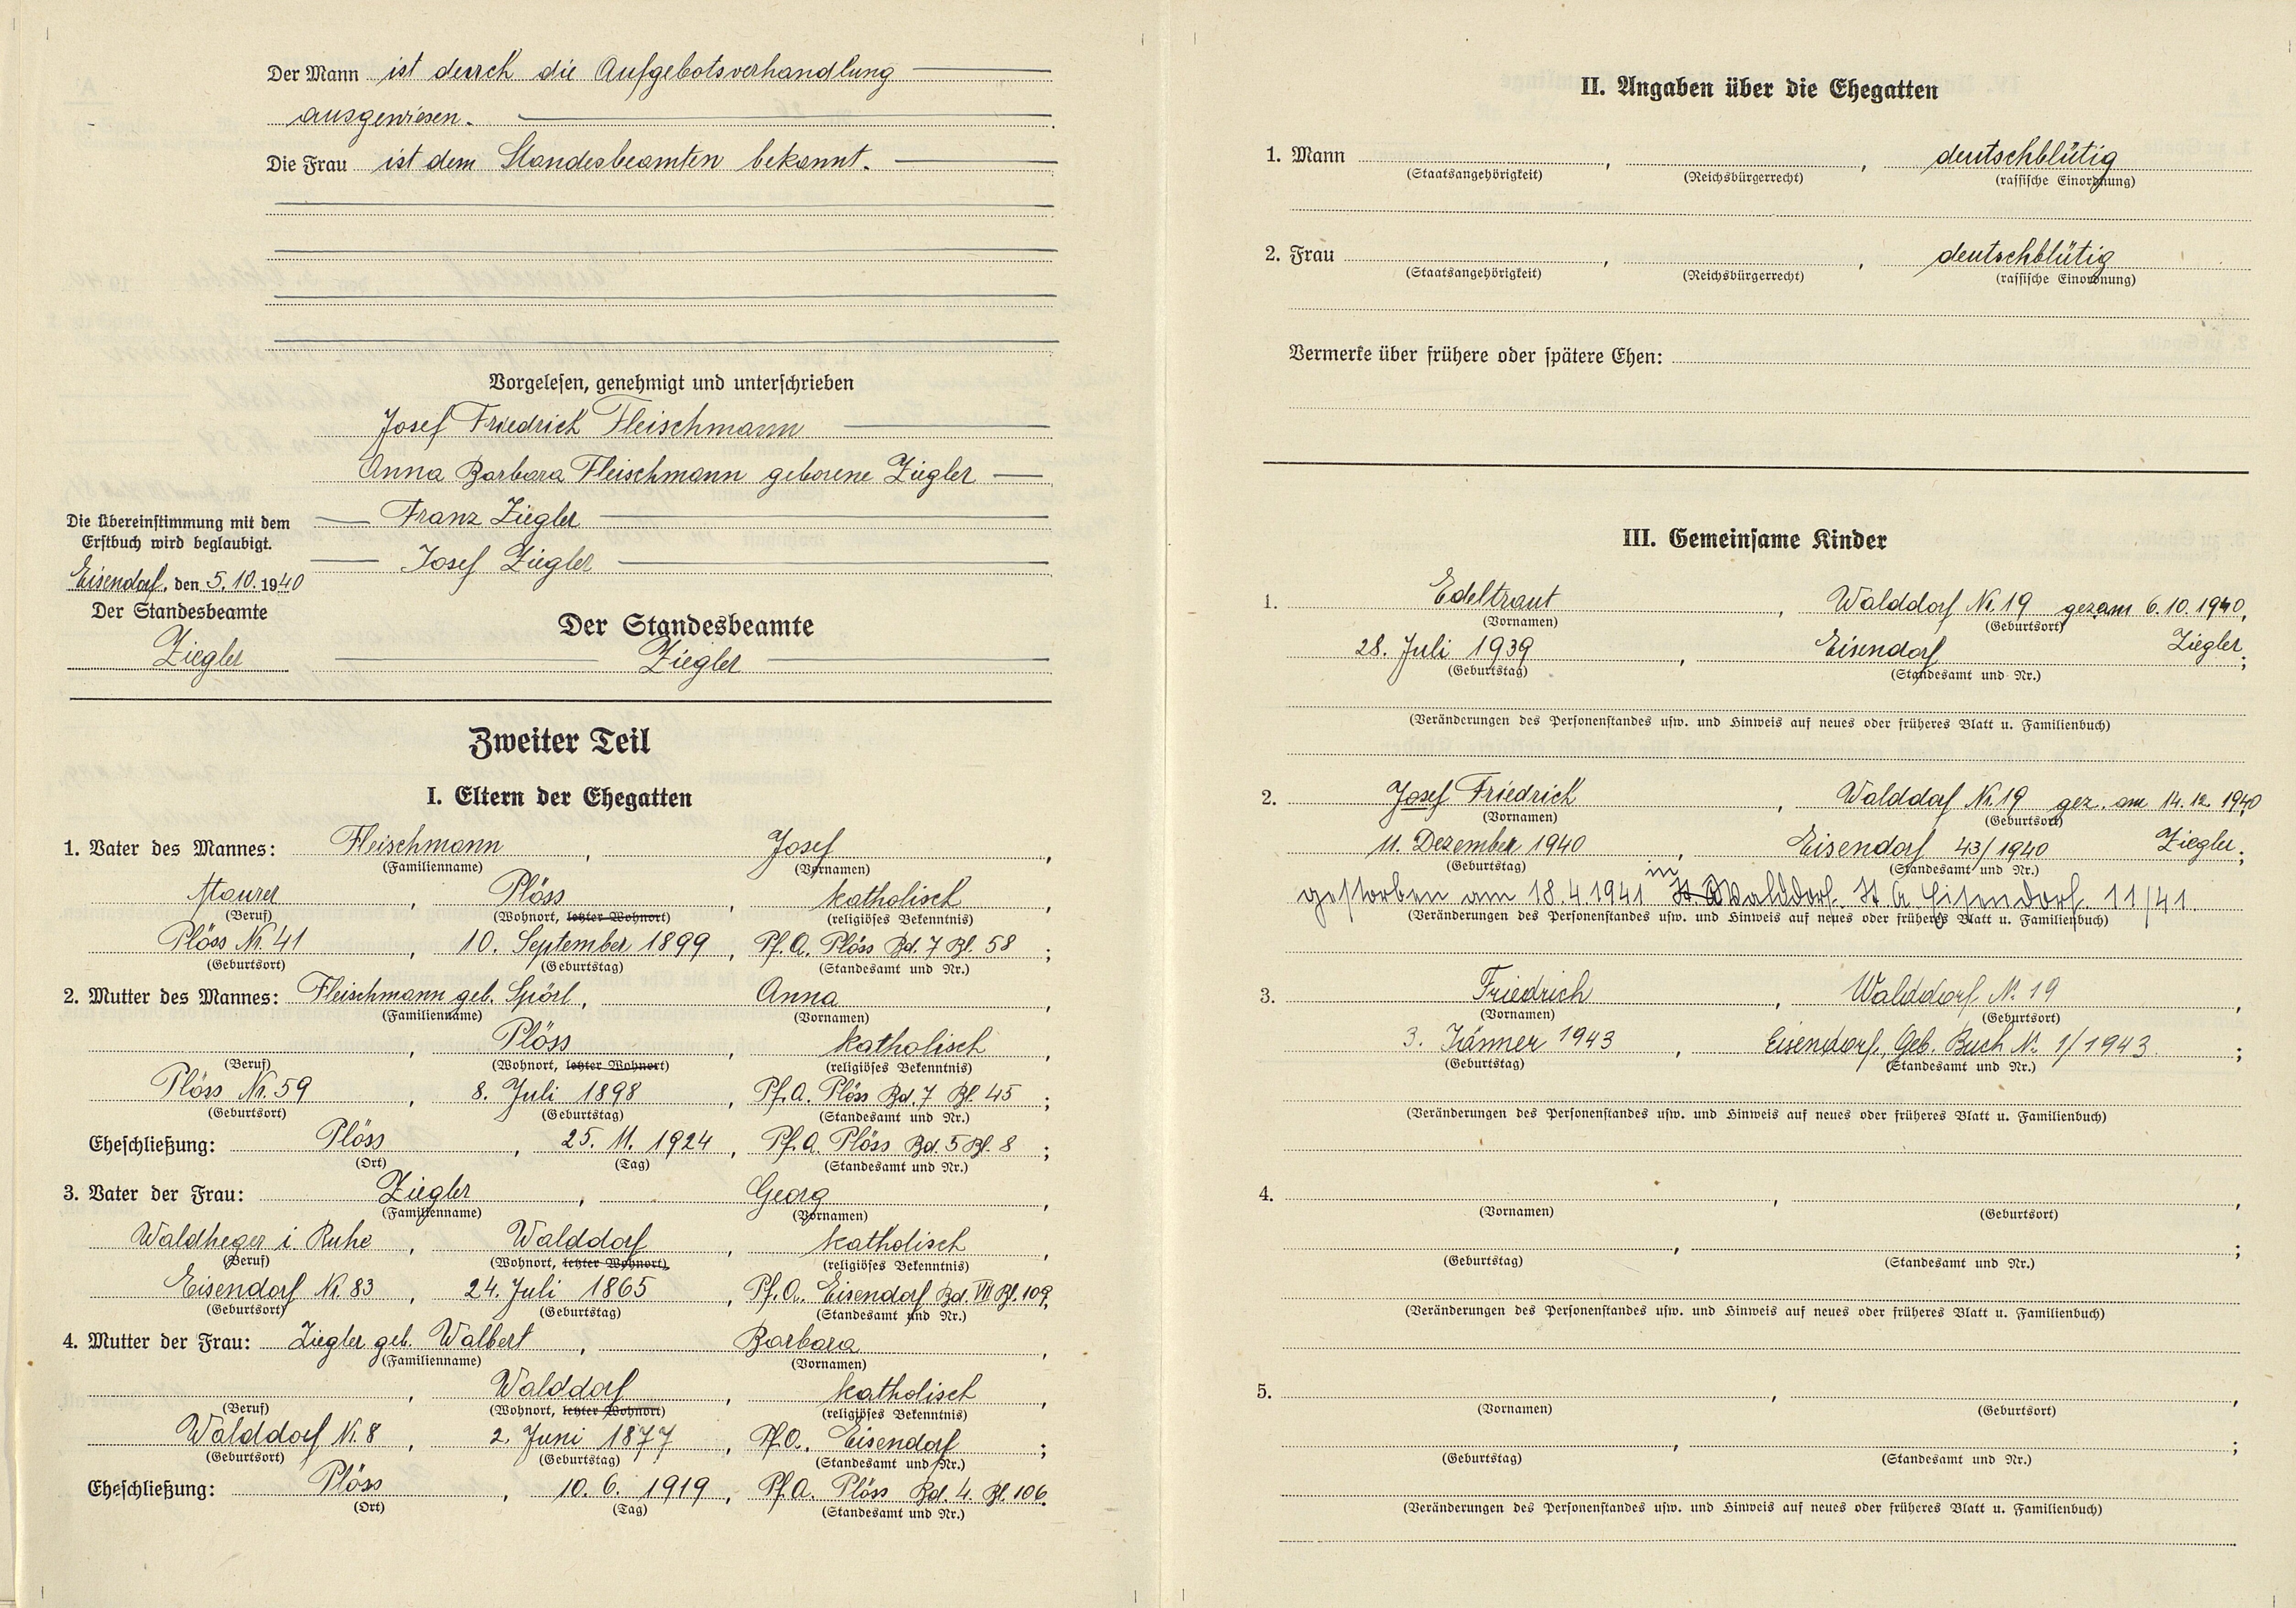 Der Mann ist durch die Aufgebotsverhandlung
ausgewiesen.
Die Frau ist dem Standesbeamten bekannt.
Vorgelesen, genehmigt und unterschrieben
Josef Friedrich Fleischmann
Anna Barbara Fleischmann geborene Ziegler
Franz Ziegler
Josef Ziegler
Die Übereinstimmung mit dem
Erstbuch wird beglaubigt.
Eisendorf, den 5. 10. 1940
Der Standesbeamte
Ziegler
Der Standesbeamte
Ziegler
Zweiter Teil
I. Eltern der Ehegatten
1. Vater des Mannes: Fleischmann, Josef,
(Familienname) (Vornamen)
Maurer, Plöss, katholisch,
(Beruf) (Wohnort, letzter Wohnort) (religiöses Bekenntnis)
Plöss Nr. 41, 10. September 1899, Pf. A. Plöss Bd. 7 Bl. 58;
(Geburtsort) (Geburtstag) (Standesamt und Nr.)
2. Mutter des Mannes: Fleischmann geb. Spörl, Anna,
(Familienname) (Vornamen)
, Plöss, katholisch,
(Beruf) (Wohnort, letzter Wohnort) (religiöses Bekenntnis)
Plöss Nr. 59, 8. Juli 1898, Pf. A. Plöss Bd. 7 Bl. 45;
(Geburtsort) (Geburtstag) (Standesamt und Nr.)
Eheschließung: Plöss, 25. 11. 1924, Pf. A. Plöss Bd. 5 Bl. 8;
(Ort) (Tag) (Standesamt und Nr.)
3. Vater der Frau: Ziegler, Georg,
(Familienname) (Vornamen)
Waldheger i. Ruhe, Walddorf, katholisch,
(Beruf) (Wohnort, letzter Wohnort) (religiöses Bekenntnis)
Eisendorf Nr. 83, 24. Juli 1865, Pf. A. Eisendorf Bd. VII Bl. 109;
(Geburtsort) (Geburtstag) (Standesamt und Nr.)
4. Mutter der Frau: Ziegler geb. Walbert, Barbara,
(Familienname) (Vornamen)
, Walddorf, katholisch,
(Beruf) (Wohnort, letzter Wohnort) (religiöses Bekenntnis)
Walddorf Nr. 8, 2. Juni 1877, Pf. A. Eisendorf;
(Geburtsort) (Geburtstag) (Standesamt und Nr.)
Eheschließung: Plöss, 10. 6. 1919, Pf. A. Plöss Bd. 4. Bl. 106.
(Ort) (Tag) (Standesamt und Nr.)
II. Angaben über die Ehegatten
1. Mann , , deutschblütig
(Staatsangehörigkeit) (Reichsbürgerrecht) (rassische Einordnung)
2. Frau , , deutschblütig
(Staatsangehörigkeit) (Reichsbürgerrecht) (rassische Einordnung)
Vermerke über frühere oder spätere Ehen:
III. Gemeinsame Kinder
1. Edeltraut, Walddorf Nr. 19 gez. am 6. 10. 1940,
(Vornamen) (Geburtsort)
28. Juli 1939, Eisendorf Ziegler;
(Geburtstag) (Standesamt und Nr.)
(Veränderungen des Personenstandes usw. und Hinweis auf neues oder früheres Blatt u. Familienbuch)
2. Josef Friedrich, Walddorf Nr. 19 gez. am 14. 12. 1940
(Vornamen) (Geburtsort)
11. Dezember 1940, Eisendorf 43/1940 Ziegler;
(Geburtstag) (Standesamt und Nr.)
gestorben am 18. 4. 1941 in Walddorf. St. A. Eisendorf. 11/41.
(Veränderungen des Personenstandes usw. und Hinweis auf neues oder früheres Blatt u. Familienbuch)
3. Friedrich, Walddorf N. 19,
(Vornamen) (Geburtsort)
3. Jänner 1943, Eisendorf, Geb. Buch N. 1/1943.;
(Geburtstag) (Standesamt und Nr.)
(Veränderungen des Personenstandes usw. und Hinweis auf neues oder früheres Blatt u. Familienbuch)
4. , ,
(Vornamen) (Geburtsort)
, ;
(Geburtstag) (Standesamt und Nr.)
(Veränderungen des Personenstandes usw. und Hinweis auf neues oder früheres Blatt u. Familienbuch)
5. , ,
(Vornamen) (Geburtsort)
, ;
(Geburtstag) (Standesamt und Nr.)
(Veränderungen des Personenstandes usw. und Hinweis auf neues oder früheres Blatt u. Familienbuch)